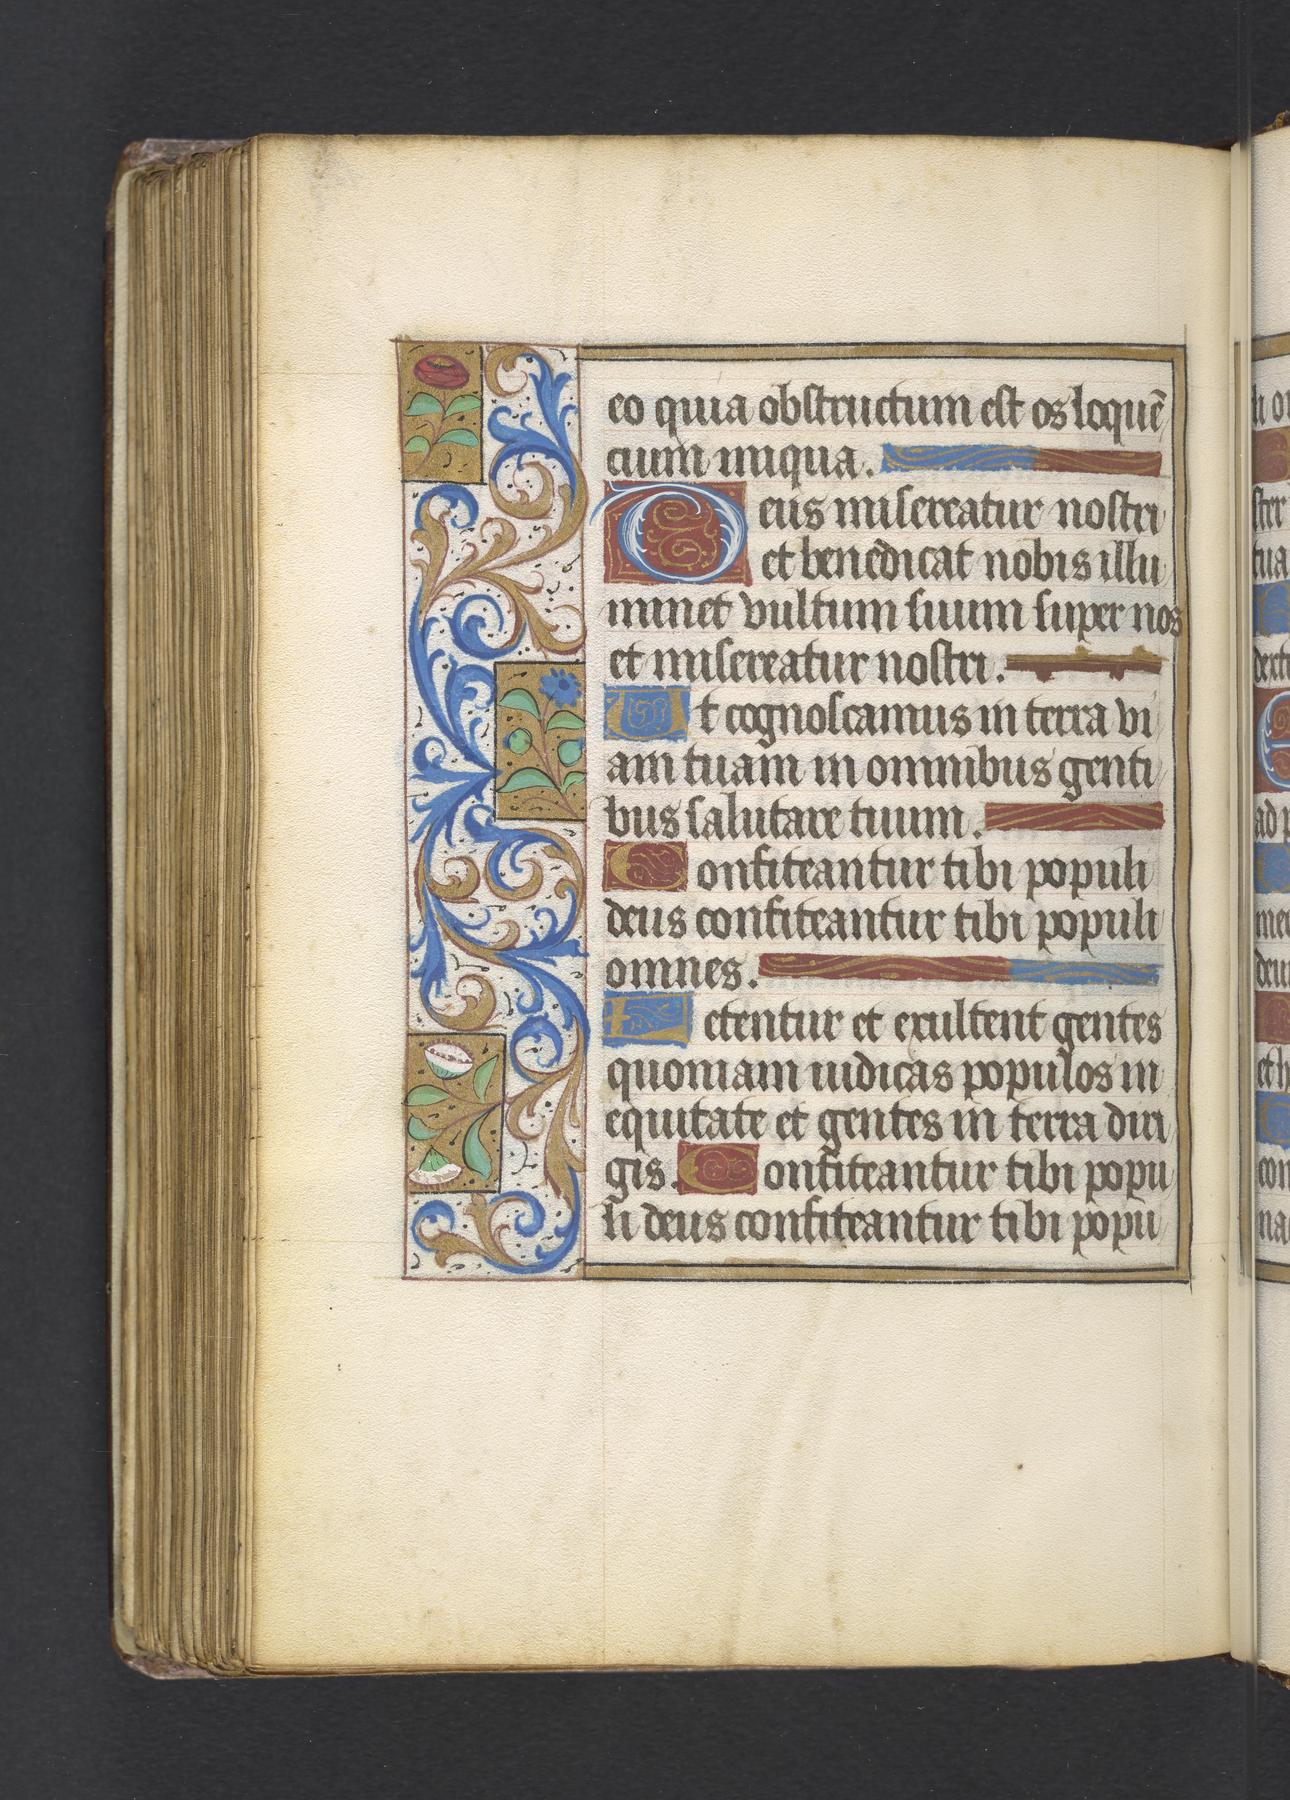 eo quia obstructum est os loquē
cium iniqua.
Deus misereatur nostri
et benedicat nobis illu
minet vultum suum super nos
et misereatur nostri.
Ut cognoscamus in terra vi
am tuam in omnibus genti
bus salutare tuum.
Confiteantur tibi populi
deus confiteantur tibi populi
omnes.
Letentur et exultent gentes
quoniam iudicas populos in
equitate et gentes in terra diri
gis. Confiteantur tibi popu
li deus confiteantur tibi popu